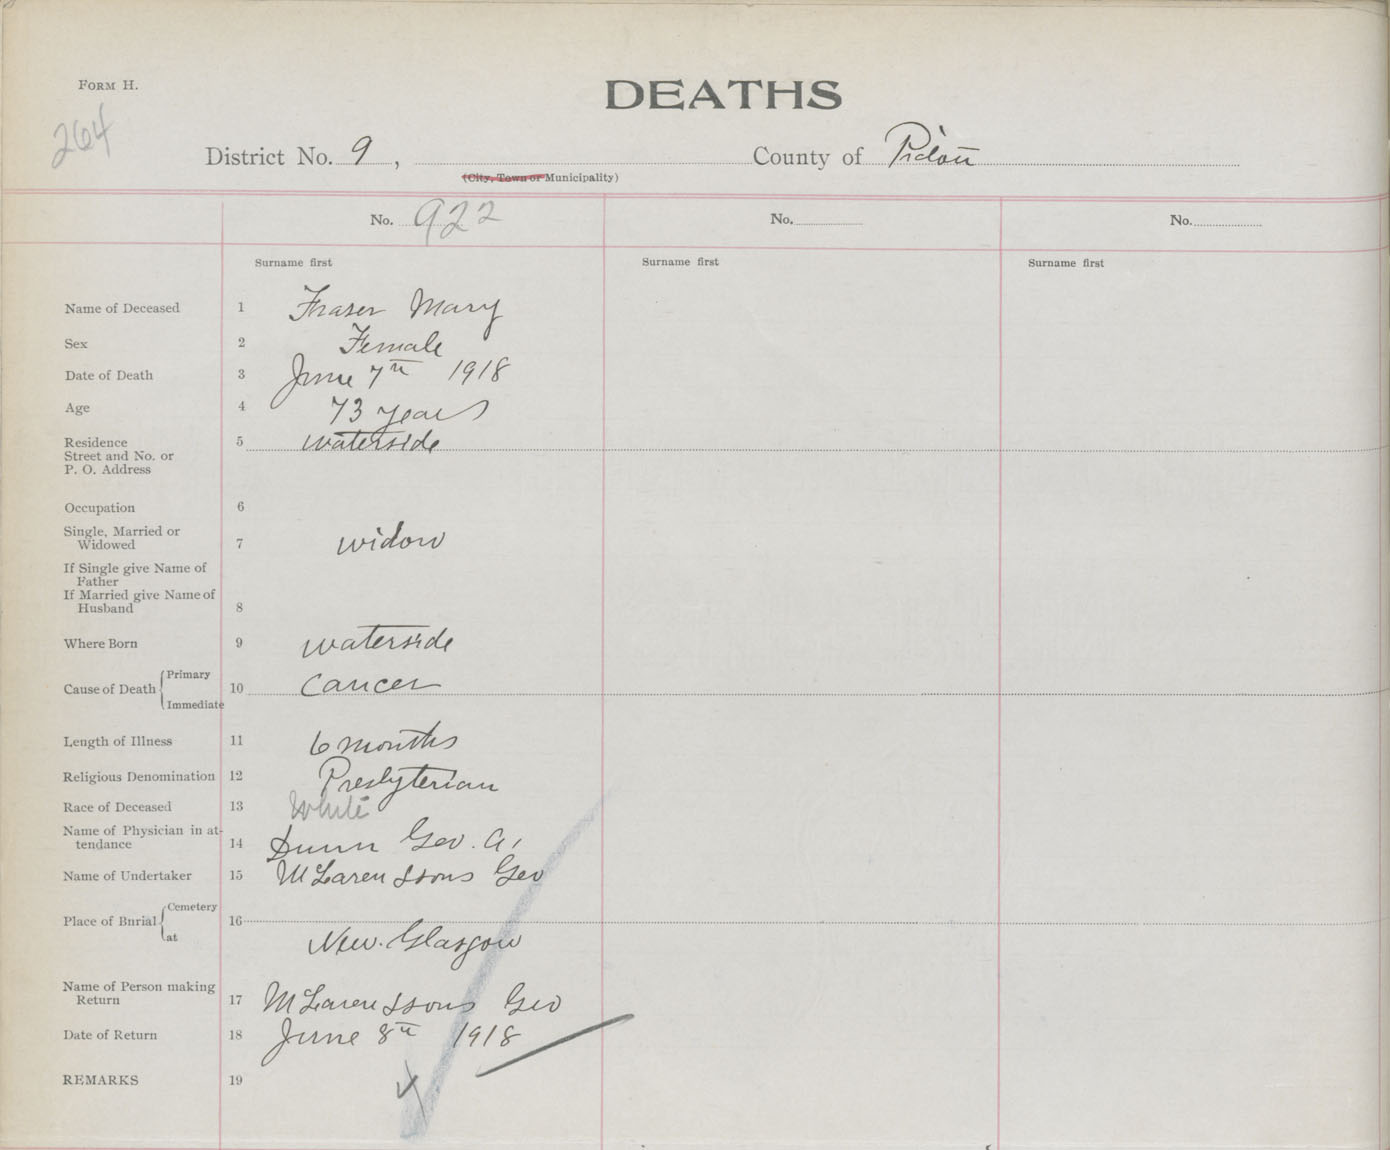 FORM H.
DEATHS
264
District No. 9, County of Pictou
(City, Town or Municipality)
No. 922 No. No.
Surname first Surname first Surname first
Name of Deceased 1 Fraser Mary
Sex 2 Female
Date of Death 3 June 7th 1918
Age 4 73 years
Residence 5 waterside
Street and No. or
P. O. Address
Occupation 6
Single, Married or
Widowed 7 widow
If Single give Name of
Father
If Married give Name of
Husband 8
Where Born 9 waterside
Cause of Death Primary
10 Cancer
Immediate
Length of Illness 11 6 months
Religious Denomination 12 Presbyterian
Race of Deceased 13 White
Name of Physician in at-
tendance 14 Dunn Geo. A.
Name of Undertaker 15 McLaren & sons Geo
Place of Burial Cemetery
16
at New Glasgow
Name of Person making
Return 17 McLaren & sons Geo
Date of Return 18 June 8th 1918
REMARKS 19